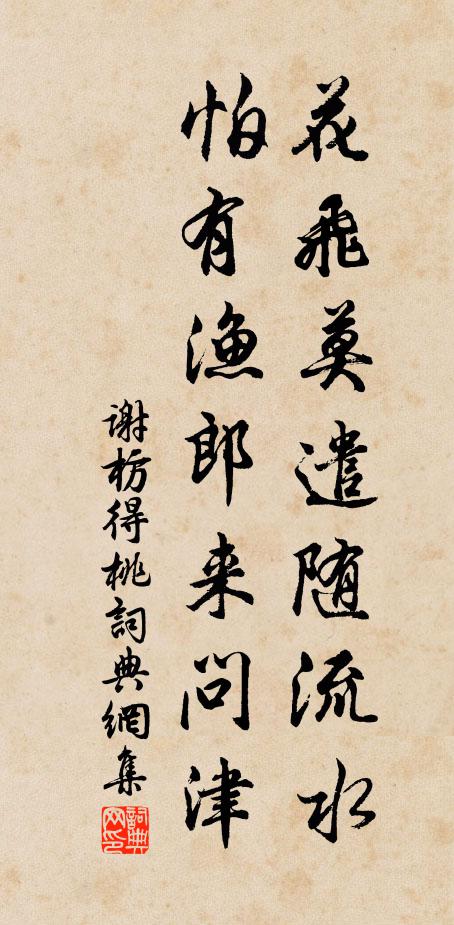 花飛莫遣随流水
怕有漁郎来問津
謝枋得桃詞典網集
詞典網印